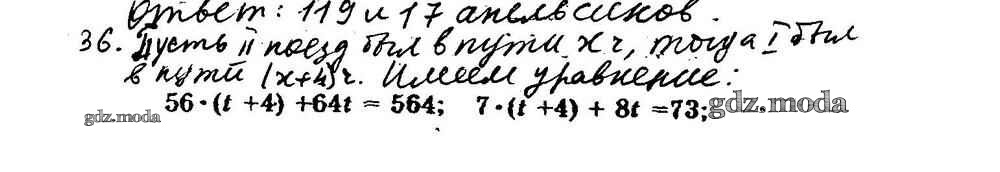 Ответ: 119 и 17 апельсинов.
36. Пусть II поезд был в пути x ч, тогда I был
в пути (x+4) ч. Имеем уравнение:
56·(t +4) +64t = 564; 7·(t +4) + 8t =73; gdz.moda
gdz.moda